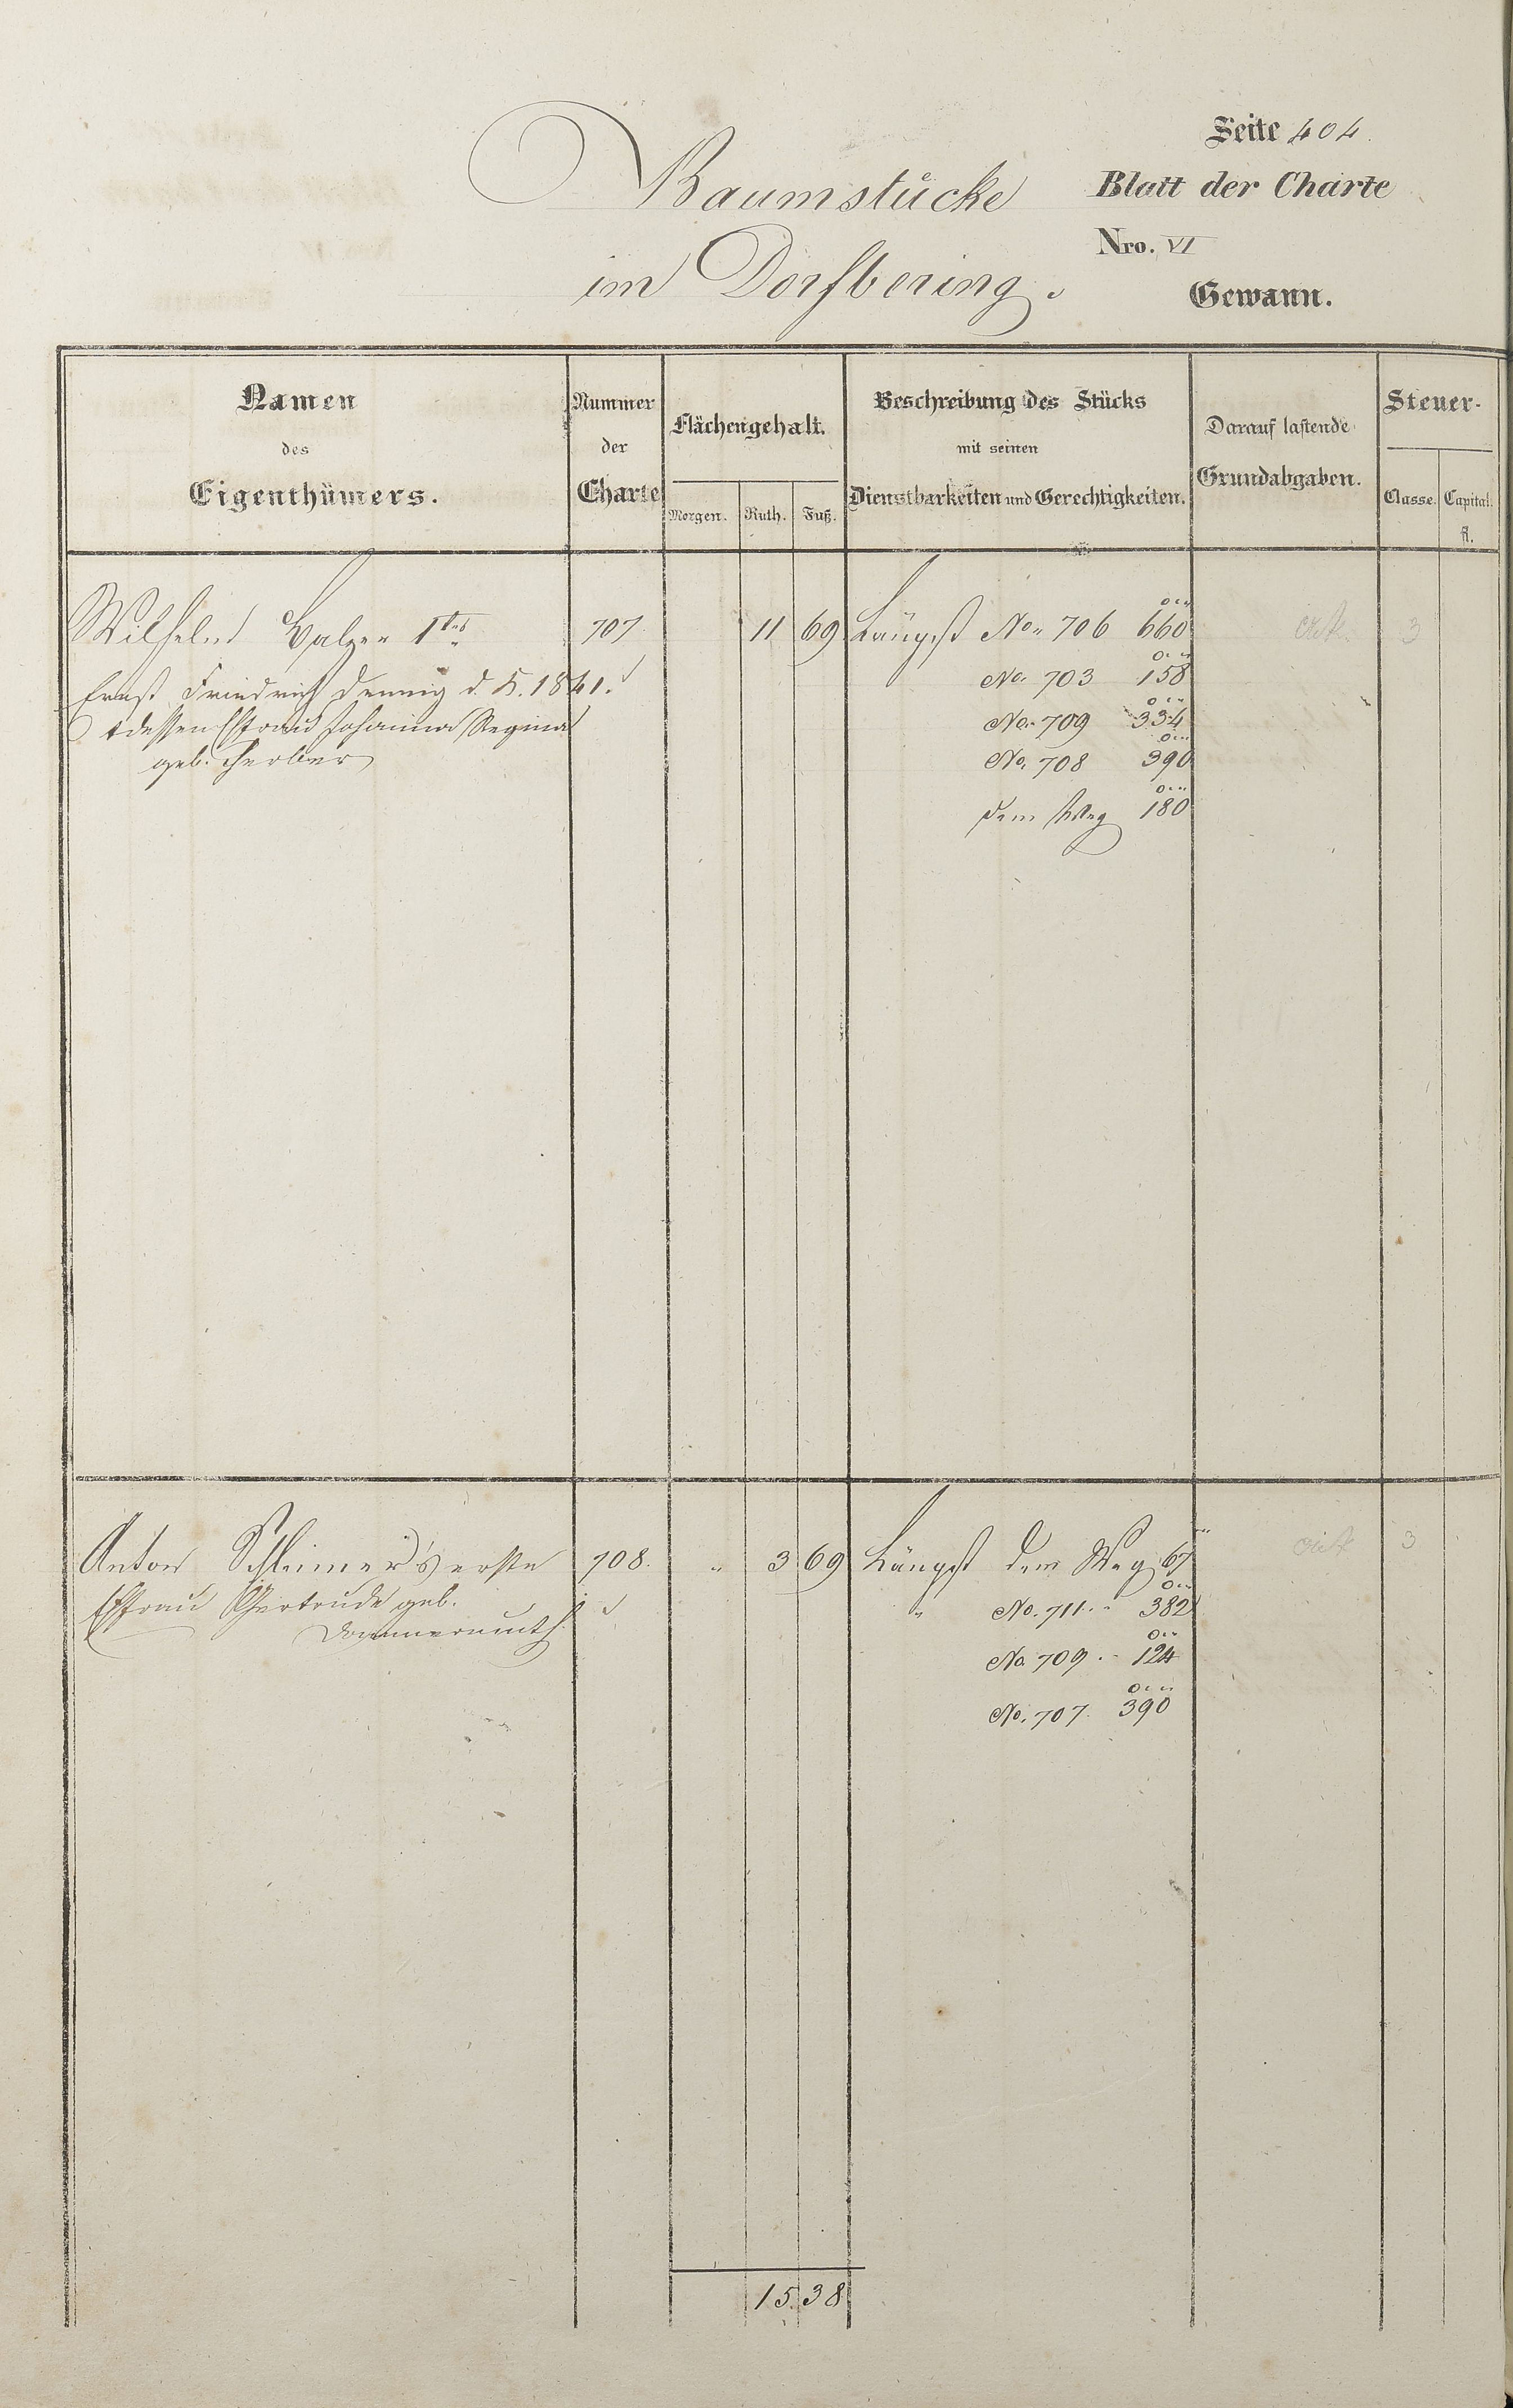 Seite 404
Baumstücke
Blatt der Charte
Nro. VI
im Dorfbering.
Gewann.
Namen
des
Eigenthümers.
Nummer
der
Charte
Flächengehalt.
Morgen. Ruth. Fuß.
Beschreibung des Stücks
mit seinen
Dienstbarkeiten und Gerechtigkeiten.
Darauf lastende
Grundabgaben.
Steuer-
Classe. Capital.
fl.
Wilhelm Balzer 1ter 707 11 69 Längst No. 706 660 3
Ernst Friedrich d. K. 1841. No. 703 158
dessen Ehfrau Johanna Regina No. 709 334
geb. No. 708 390
dem Weg 180
Anton Schleimer's erste 708. " 3 69 Längst dem Weg 67 3
Ehfrau Gertrude geb. " No. 711. 382
Dommermuth No. 709. 124
No. 707. 390
15 38